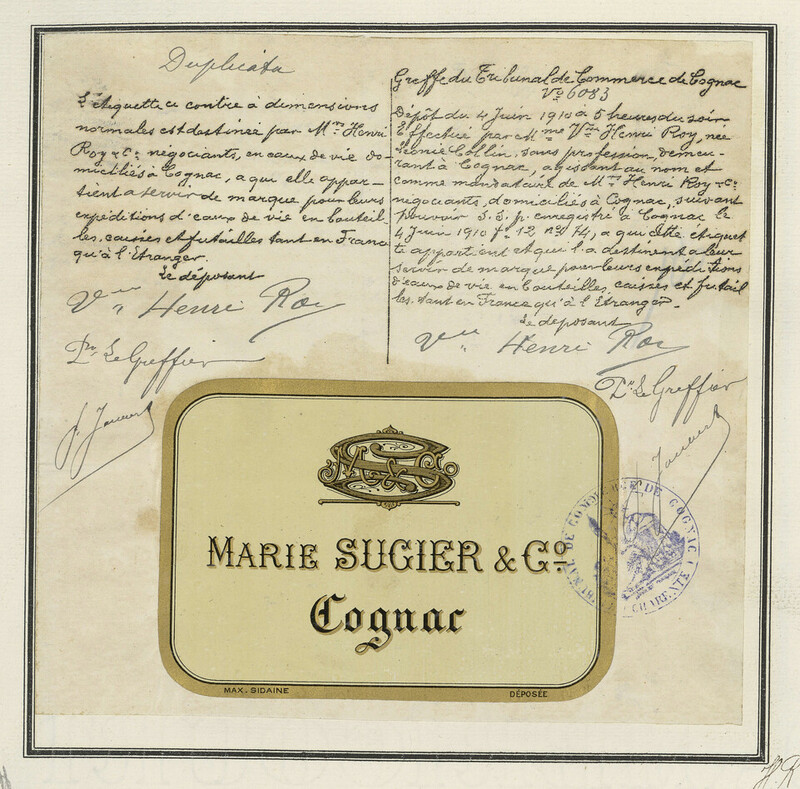 Duplicata
L'étiquette ci contre à dimensions
normales est destinée par M.rs Henri
Roy & Cº négociants, en eaux de vie do-
miciliés à Cognac, a qui elle appar-
tient a servir de marque pour leurs
expéditions d'eaux de vie en bouteil-
les, caisses et futailles tant en France
qu'à l'Etranger.
Le déposant
Vve Henri Roy
Pr Le Greffier
Greffe du Tribunal de Commerce de Cognac
Nº 6083
Dépôt du 4 Juin 1910 à 5 heures du soir
Effectué par Mme Vve Henri Roy, née
Léonie Collin, sans profession, demeu-
rant à Cognac, agissant au nom et
comme mandataire de M.rs Henri Roy & Cº
négociants, domiciliés à Cognac, suivant
pouvoir S.S.p. enregistré à Cognac le
4 Juin 1910 fº 12 nº 14, a qui cette étiquet
te appartient et qui l'a destinent a leur
servir de marque pour leurs expéditions
d'eaux de vie en bouteilles, caisses et futail
les, tant en France qu'à l'Etranger.
Le déposant
Vve Henri Roy
Pr Le Greffier
M S & Cº
MARIE SUGIER & Cº
Cognac
MAX. SIDAINE
DÉPOSÉE
TRIBUNAL DE COMMERCE DE COGNAC
CHARENTE
H. R